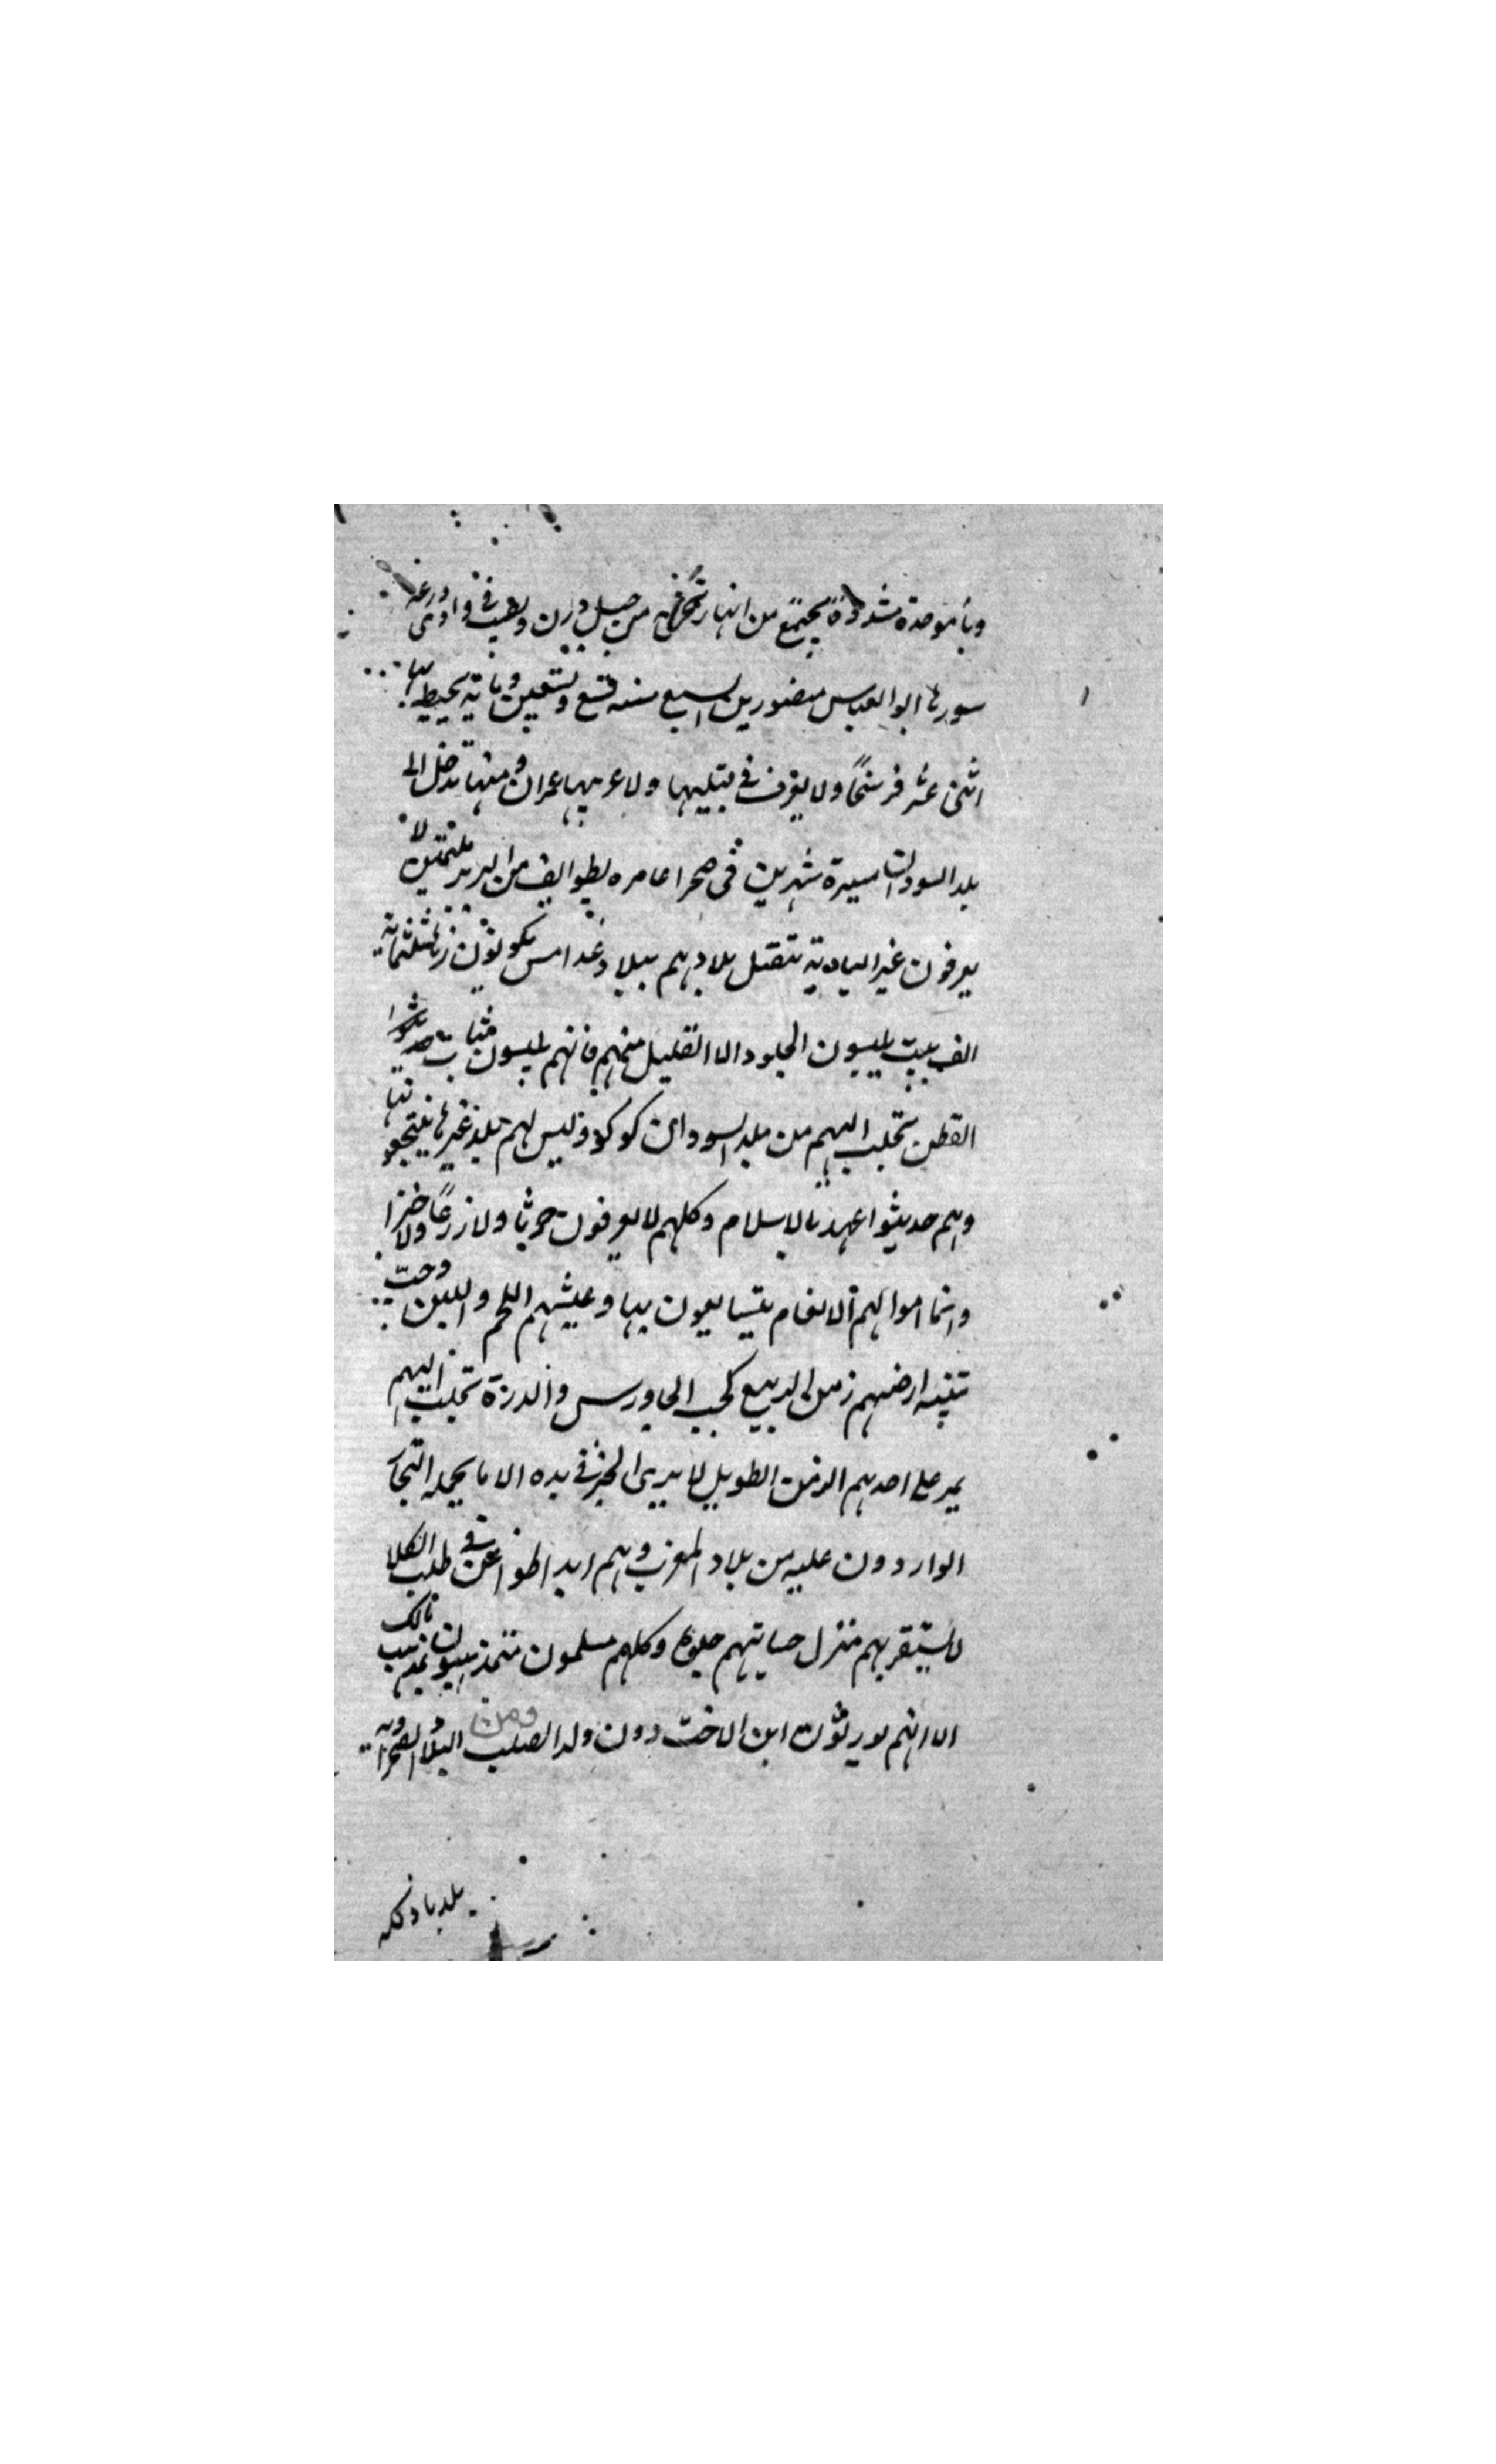 وباء موحدة مشددة يجتمع من انهار تخرج من جبل درن ويصب في وادى درعه
سورها ابو العباس منصور بن اليسع سنه تسع وتسعين وماية يحيط بها
اثنى عشر فرسخًا ولا يعرف في قبليها ولا غربيها عمران ومنها تدخل الى
بلد السودان مسيرة شهرين فى صحرا عامره بطوايف من البربر ملثمين لا
يعرفون غير البادية تتصل بلادهم ببلاد غدامس يكونون زها ثلثماية
الف بيت يلبسون الجلود الا القليل منهم فانهم يلبسون ثياب
القطن تجلب اليهم من بلد السودان كوكو وليس لهم بلد غيرها ينتجعونها
وهم حديثوا عهد بالاسلام وكلهم لا يعرفون حرثا ولا زرعًا ولا خبزا
وانما اموالهم الانعام يتبايعون بها وعيشهم اللحم واللبن وحب
تنبته ارضهم زمن الربيع كحب الجاورس والدرة تجلب اليهم
يمر على احدهم الزمن الطويل لا يرى الخبز في يده الا ما يحمله التجار
الواردون عليه من بلاد المغرب وهم ابدا ظواعن في طلب الكلا
لا يستقر بهم منزل وكلهم مسلمون متمذهبون بمذهب مالك
الا انهم يورثون ابن الاخت دون ولد الصلب ومن البلاد الصحراويه
بلد بادكله